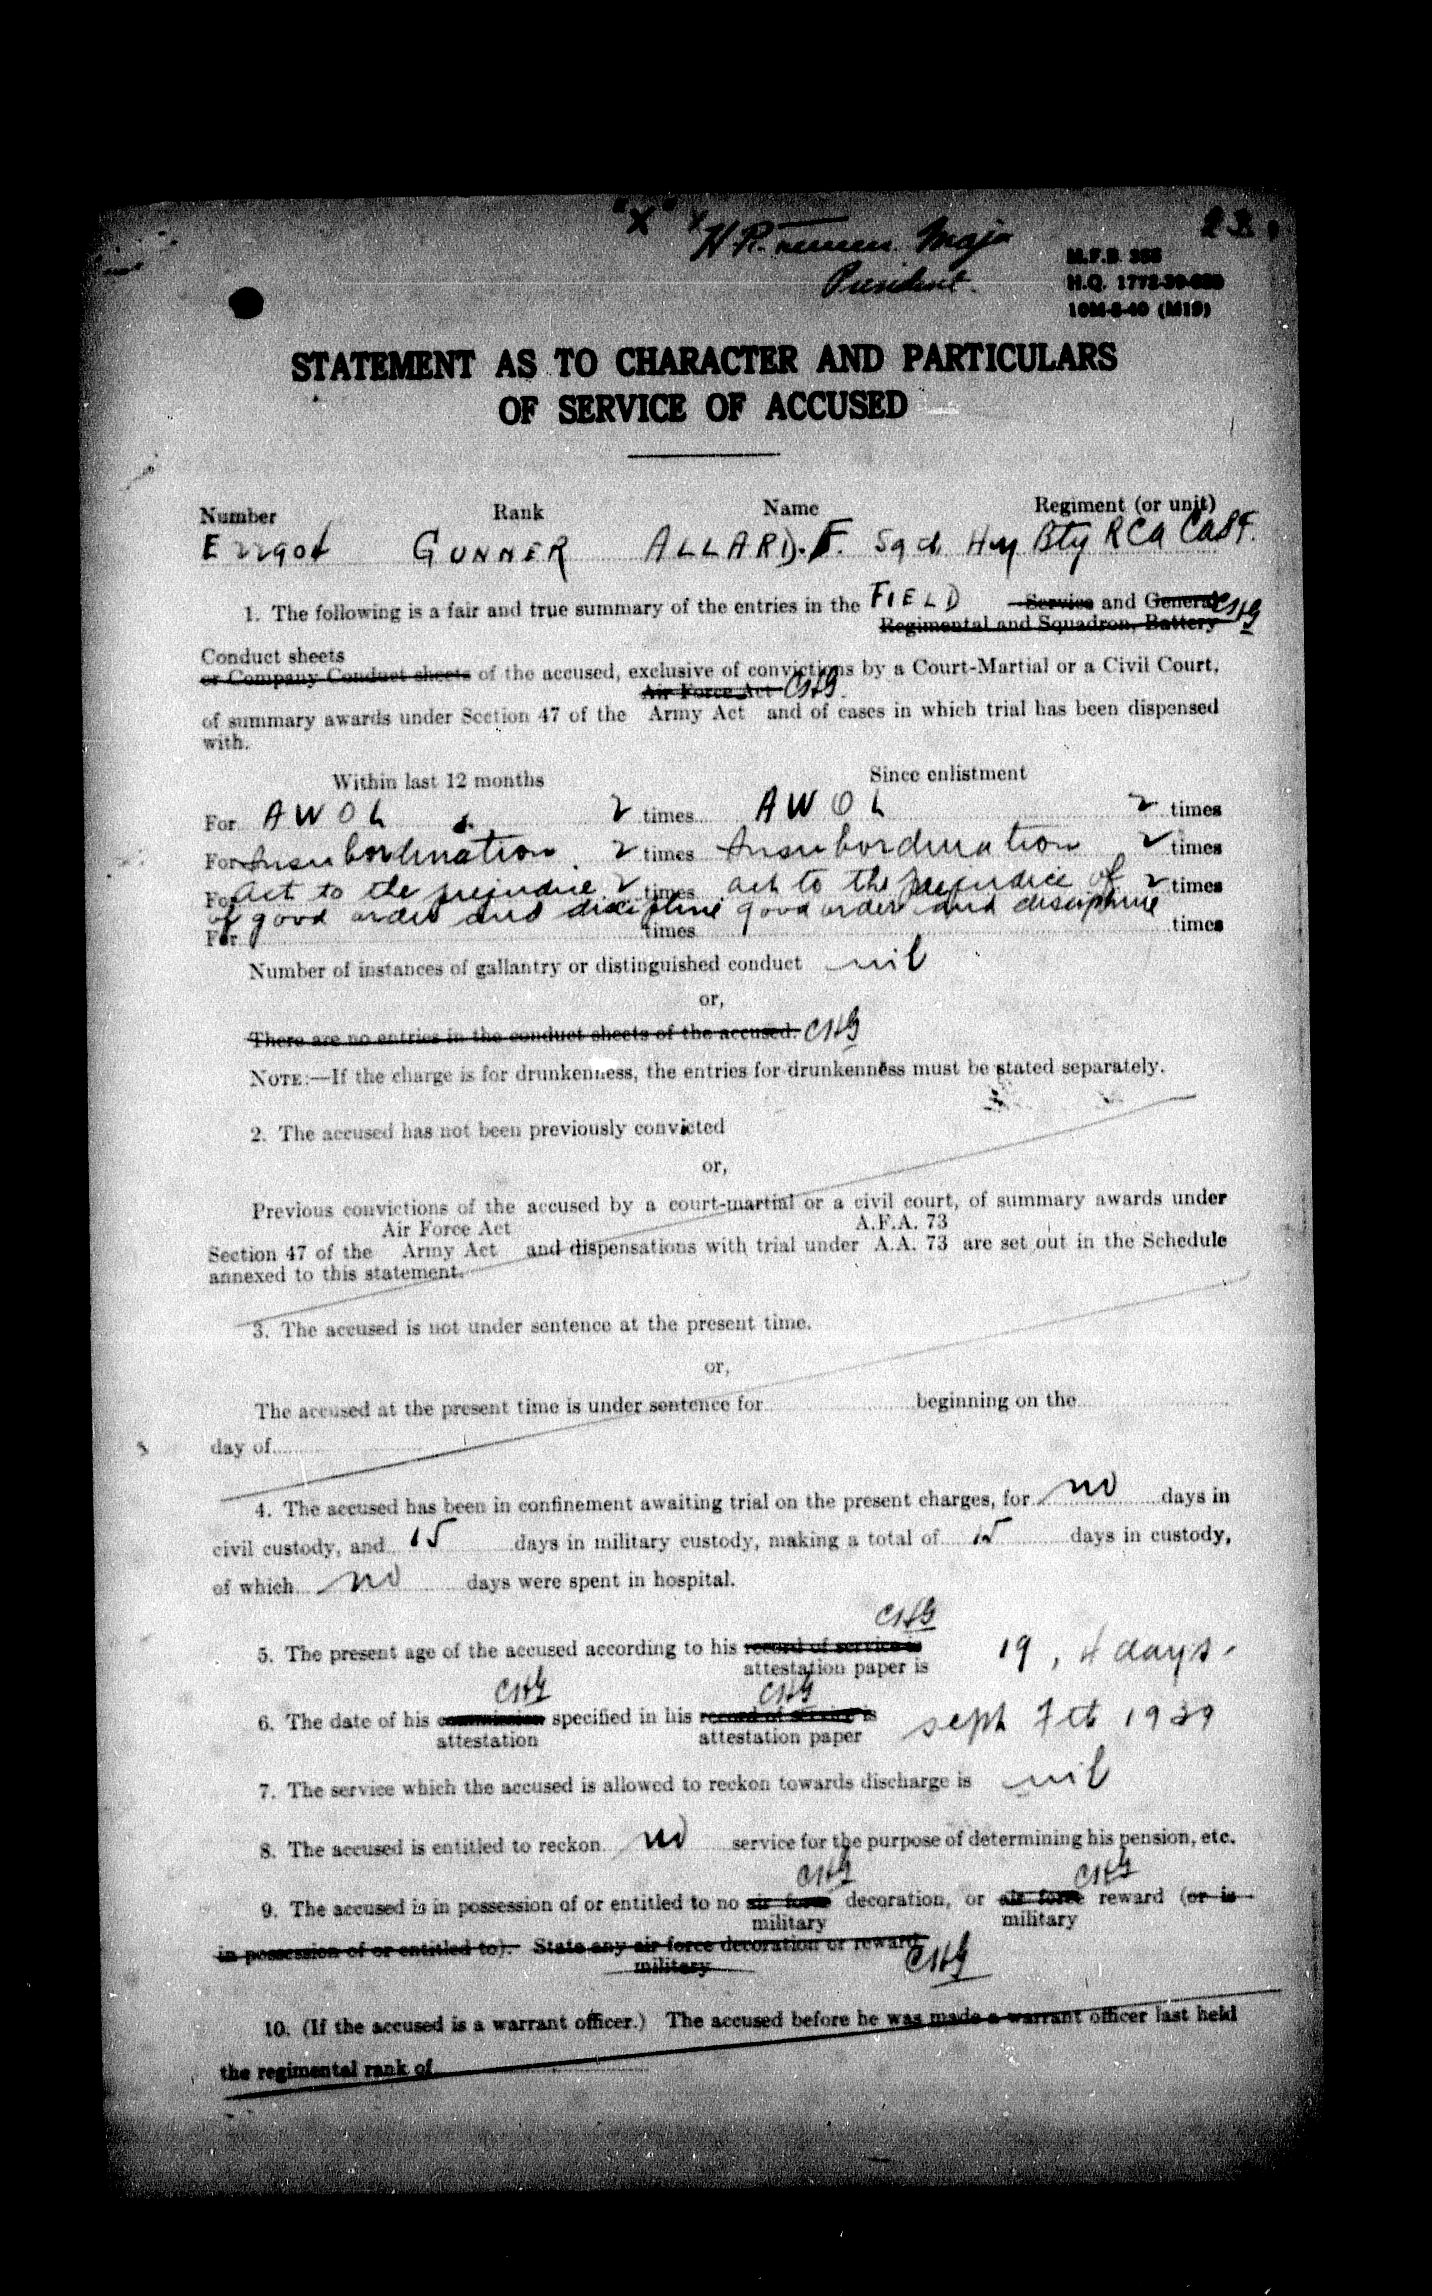 "X"
23.
H.P. Maj
President.
M.F.B. 355
H.Q. 1772-39-
10M-8-40 (M19)
STATEMENT AS TO CHARACTER AND PARTICULARS
OF SERVICE OF ACCUSED
Number Rank Name Regiment (or unit)
E GUNNER ALLARD. F. Hvy Bty RCA CASF.
1. The following is a fair and true summary of the entries in the FIELD Service and General CHG
Regimental and Squadron, Battery
Conduct sheets
or Company Conduct sheets of the accused, exclusive of convictions by a Court-Martial or a Civil Court,
Air Force Act CHG.
of summary awards under Section 47 of the Army Act and of cases in which trial has been dispensed
with.
Within last 12 months Since enlistment
For AWOL 2 times AWOL 2 times
For Insubordination 2 times Insubordination 2 times
For act to the prejudice 2 times act to the prejudice of 2 times
of good order and discipline good order and discipline
For times times
Number of instances of gallantry or distinguished conduct nil
or,
There are no entries in the conduct sheets of the accused. CHG
NOTE:—If the charge is for drunkenness, the entries for drunkenness must be stated separately.
2. The accused has not been previously convicted
or,
Previous convictions of the accused by a court-martial or a civil court, of summary awards under
Air Force Act A.F.A. 73
Section 47 of the Army Act and dispensations with trial under A.A. 73 are set out in the Schedule
annexed to this statement.
3. The accused is not under sentence at the present time.
or,
The accused at the present time is under sentence for beginning on the
day of
4. The accused has been in confinement awaiting trial on the present charges, for no days in
civil custody, and 15 days in military custody, making a total of 15 days in custody,
of which no days were spent in hospital.
CHG
5. The present age of the accused according to his record of service is 19, 4 days.
attestation paper is
CHG CHG
6. The date of his commission specified in his record of service is sept 7th 1939
attestation attestation paper
7. The service which the accused is allowed to reckon towards discharge is nil
8. The accused is entitled to reckon no service for the purpose of determining his pension, etc.
CHG CHG
9. The accused is in possession of or entitled to no air force decoration, or air force reward (or is
military military
in possession of or entitled to). State any air force decoration or reward CHG
military
10. (If the accused is a warrant officer.) The accused before he was made a warrant officer last held
the regimental rank of